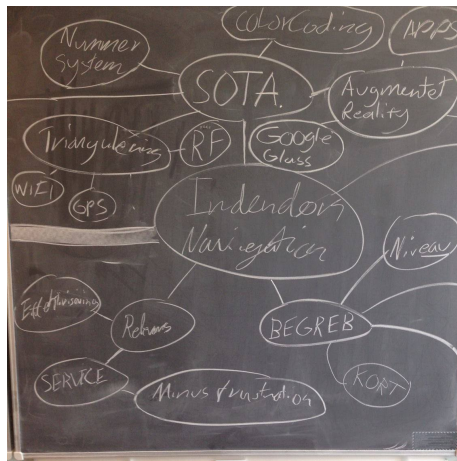 ColorCoding
APPS
Nummer
system
SOTA.
Augmentet
Reality
Triangulering
RF
Google
Glass
WiFi
GPS
Indendørs
Navigation
Niveau
Reklams
BEGREB
SERVICE
Minus frustration
KORT